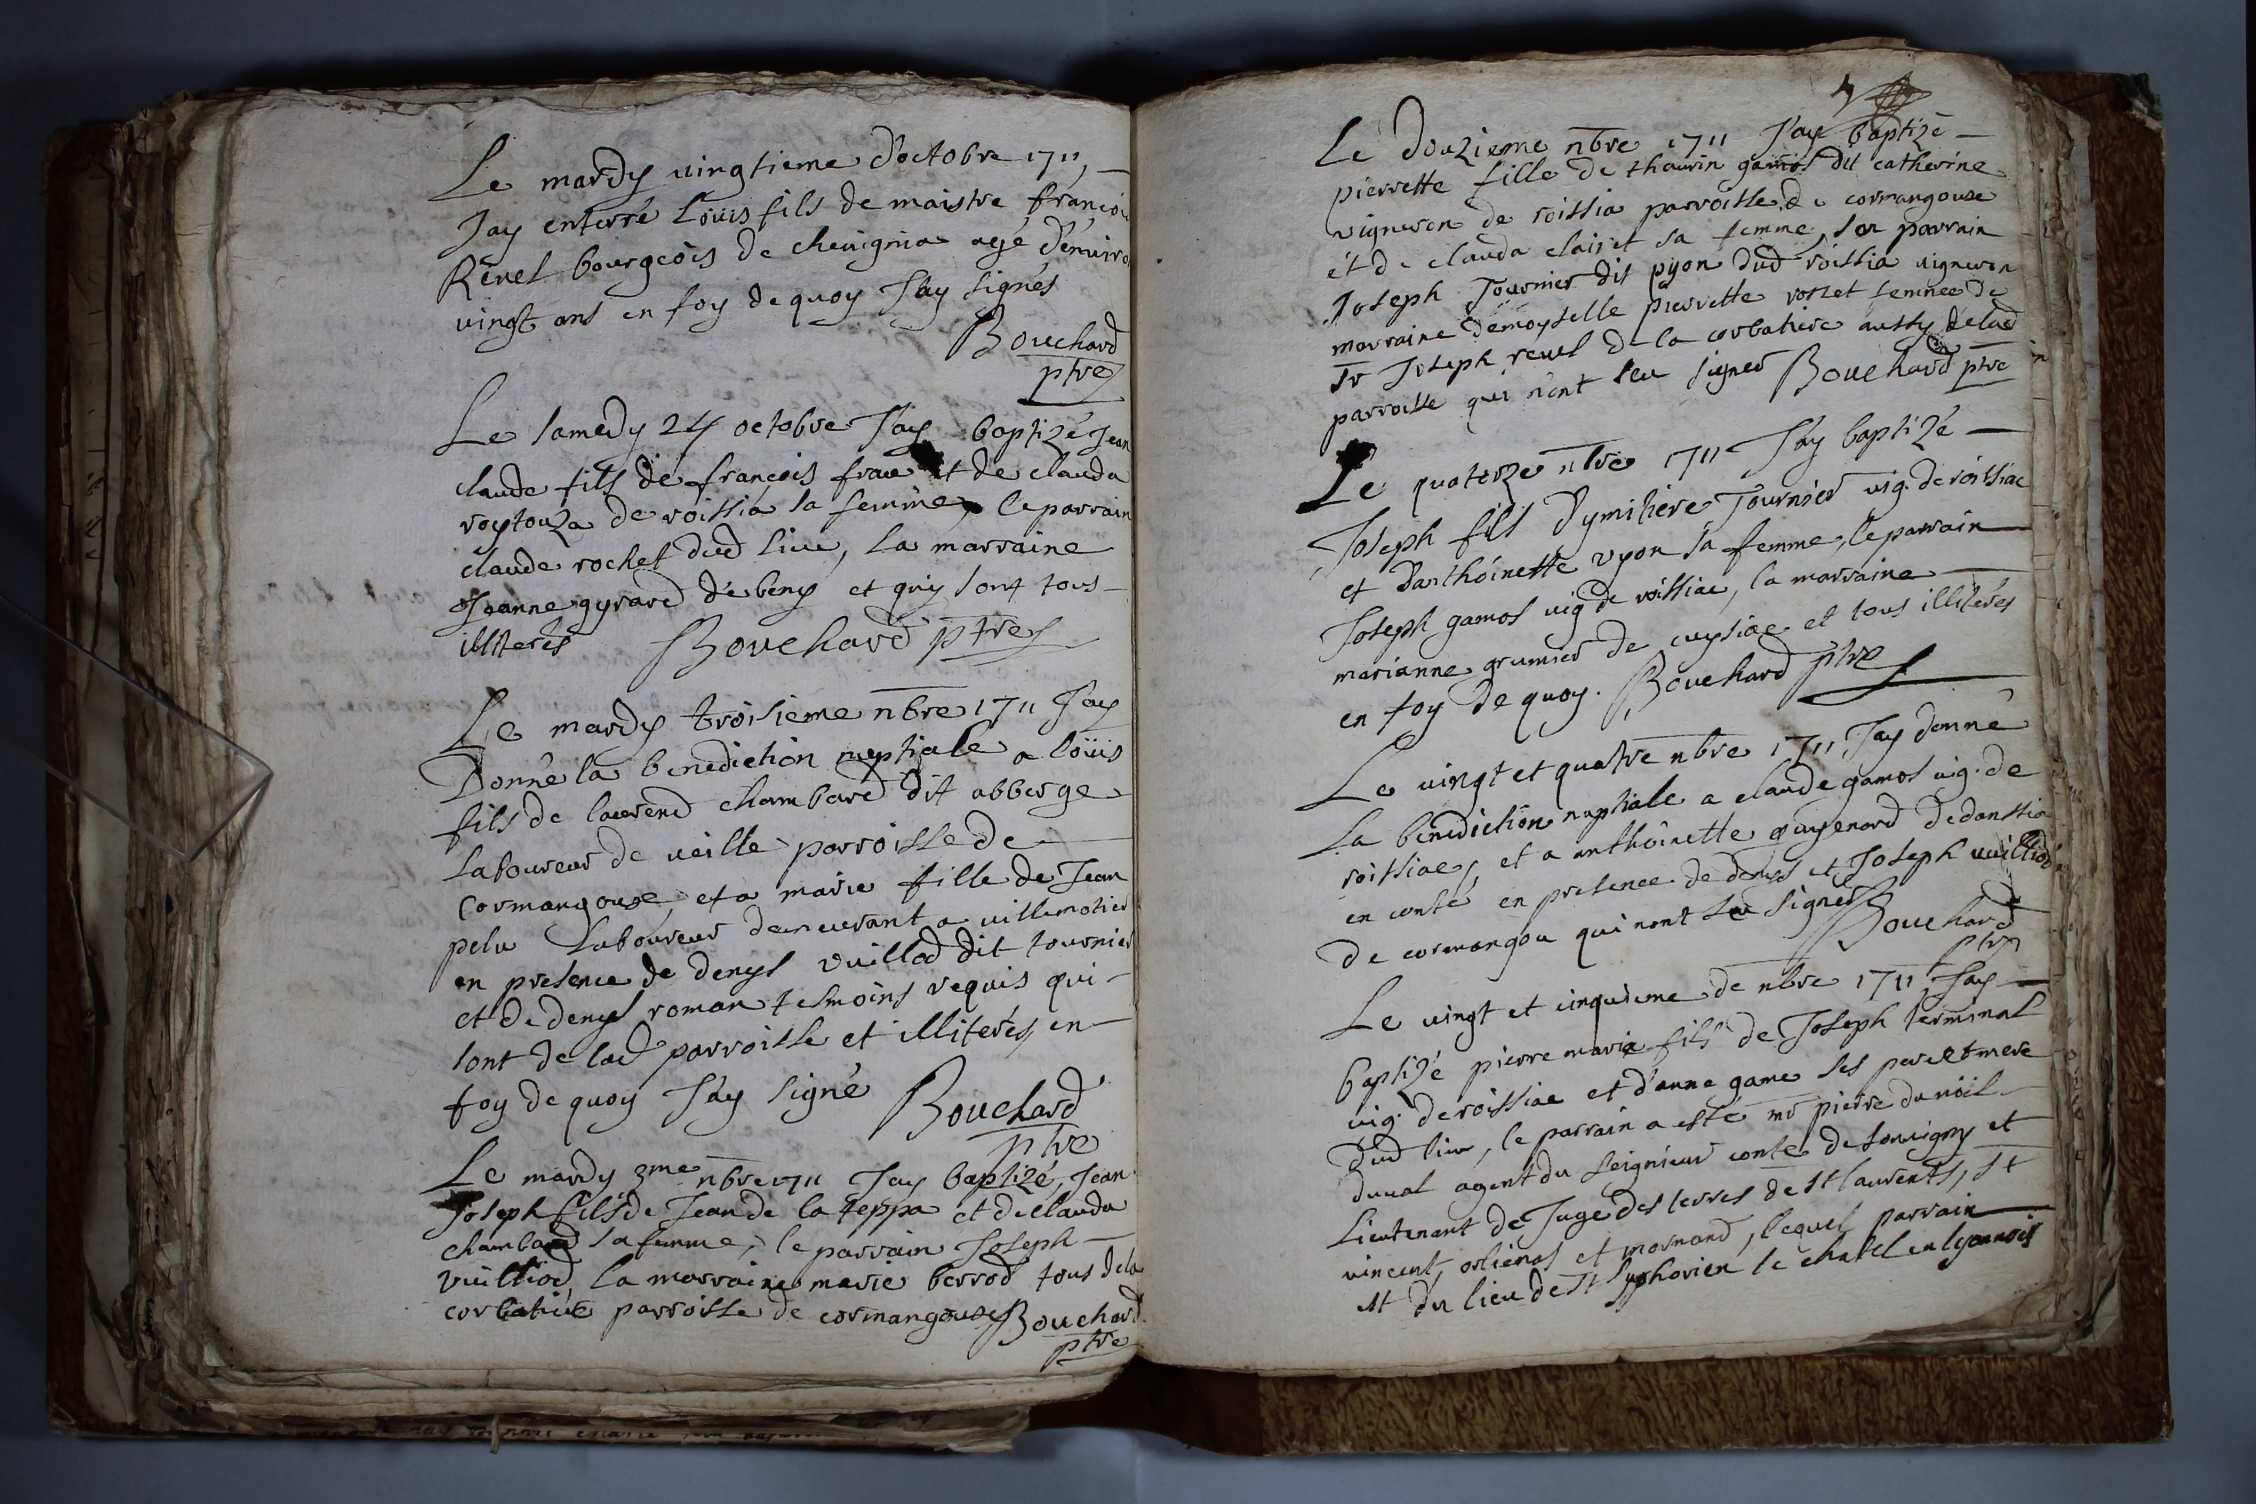 Le mardy vingtieme d'octobre 1711
Jay enterré Loüis fils de maistre francois
Renel bourgeois de chevignia agé d'enviro
vingt ans en foy de quoy J'ay signés
Bouchard
ptre
Le samedy 24 octobre J'ay baptizé Jean
claude fils de françois et de clauda
roytouza de roissia sa femme, le parrain
claude rochet dud lieu, la marraine
Jeanne gyrard de beny et qui sont tous
illiterés Bouchard ptre
Le mardy troisieme nbre 1711 J'ay
Donné la benediction nuptiale a loüis
fils de laurend chambard dit abberge
Laboureur de veille parroisse de
Cormangouse, et a marie fille de Jean
pelu Laboureur demeurant a villemotier
en presence de denys vuillod dit tournier
et de denys roman tesmoins requis qui
sont de lad parroisse et illiterés, en
foy de quoy J'ay signé Bouchard
ptre
Le mardy 3me nbre 1711 Jay baptizé, Jean
Joseph fils de Jean de la teppa et de clauda
chambard sa femme, le parrain Joseph
vuilliod, la marraine marie berrod tous de la
corbatiere parroisse de cormangouse Bouchard
ptre
Le douzieme nbre 1711 J'ay baptizé
pierrette fille de thaurin gamos dit catherine
vigneron de roissia parroisse de cormangouse
et de clauda clairet sa femme, son parrain
Joseph Tournier dit pyon dud roissia vigneron
marraine demoyselle pierrette rosset femme de
sr Joseph revel de la corbatiere aussy de lad
parroisse qui n'ont seu signer Bouchard ptre
Le quatorze nbre 1711 J'ay baptizé
Joseph fils d'ymiliere Tournier vig. de roissiac
et d'anthoinette vyon sa femme, le parrain
Joseph gamos vig de roissiac, la marraine
marianne grumier de cuysiac et tous illiterés
en foy de quoy. Bouchard ptre
Le vingt et quatre nbre 1711 J'ay donné
La benediction nuptiale a claude gamos vig. de
roissiac, et a anthoinette guyenard de danssia
en conté en presence de denys et Joseph vuilliod
de cormangou qui nont seu signer Bouchard
ptre
Le vingt et cinquieme de nbre 1711 J'ay
baptizé pierre marie fils de Joseph terminal
vig. de roissiac et d'anne game ses pere et mere
dud lieu, le parrain a esté mr pierre du noël
duval agent du seigneur conte de souvigny et
Lieutenant de Juge des terres de st laurents, st
vincent, orlienas et mornand, lequel parrain
est du lieu de st syphorien le chatel en lyonnois